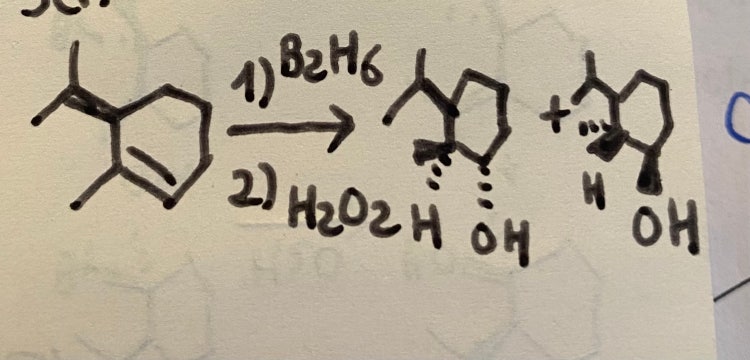 1) B2H6
2) H2O2
+
H
OH
H
OH